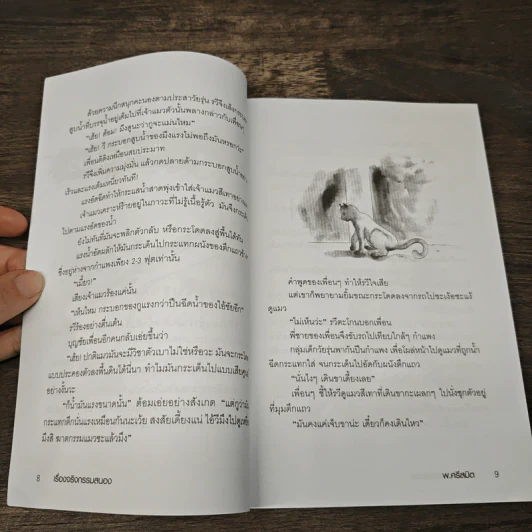 ด้วยความนึกสนุกคะนองตามประสาวัยรุ่น รวีจึงเล็งกระบอก
สูบน้ำที่บรรจุน้ำอยู่เต็มไปที่เจ้าแมวตัวนั้นพลางกล่าวกับเพื่อนๆ
"เฮ้ย! ต้อม! มึงดูนะว่ากูจะแม่นไหม"
"เฮ้ย! วี กระบอกสูบน้ำของมึงแรงไม่พอถึงมันหรอกว่ะ"
เพื่อนดีดังเหมือนสบประมาท
รวีจึงเพิ่มความมุ่งมั่น แล้วกดปลายด้ามกระบอกสูบน้ำอย่าง
เร็วและแรงเต็มเหนี่ยวทันที!
แรงอัดฉีดทำให้กระแสน้ำสาดพุ่งเข้าใส่เจ้าแมวสีเทาอย่าง
เจ้าแมวเคราะห์ร้ายอยู่ในภาวะที่ไม่รู้เนื้อรู้ตัว มันจึงกระเด็น
ไปตามแรงอัดของน้ำ
ยังไม่ทันที่มันจะพลิกตัวกลับ หรือกระโดดลงสู่พื้นได้ทัน
แรงน้ำอัดผลักให้มันกระเด็นไปกระแทกผนังของตึกแถว
ซึ่งอยู่ห่างจากกำแพงเพียง 2-3 ฟุตเท่านั้น
"เมี้ยว!"
เสียงเจ้าแมวร้องแค่นั้น
"เห็นไหม กระบอกของกูแรงกว่าปืนฉีดน้ำของไอ้ชัยอีก"
รวีร้องอย่างตื่นเต้น
บุญชัยเพื่อนอีกคนกลับเอ่ยขึ้นว่า
"เฮ้ย! ปกติแมวมันจะมีวิชาตัวเบาไม่ใช่หรือวะ มันจะกระโดด
แบบประคองตัวลงพื้นดินได้นี่นา ทำไมมันกระเด็นไปแบบเสียศูนย์
อย่างงั้นวะ
"ก็น้ำมันแรงขนาดนั้น" ต้อมเอ่ยอย่างสังเกต "แต่กูว่ามัน
กระแทกตึกนั่นแรงเหมือนกันนะเว้ย สงสัยเดี้ยงแน่ ไอ้วีมึงไปดู
มึงสิ ฆาตกรรมแมวซะแล้วมึง"
8 เรื่องจริงกรรมสนอง
คำพูดของเพื่อนๆ ทำให้รวีใจเสีย
แต่เขาก็พยายามยิ้มขณะกระโดดลงจากรถไปชะเง้อชะแง้
ดูแมว
"ไม่เห็นว่ะ" รวีตะโกนบอกเพื่อน
พี่ชายของเพื่อนจึงขับรถไปเทียบใกล้ๆ กำแพง
กลุ่มเด็กวัยรุ่นพากันปีนกำแพง เพื่อโผล่หน้าไปดูแมวที่ถูกน้ำ
ฉีดกระแทกใส่ จนกระเด็นไปอัดกับผนังตึกแถว
"นั่นไงๆ เดินขาเดี้ยงเลย"
เพื่อนๆ ชี้ให้รวีดูแมวสีเทาที่เดินขากะเผลกๆ ไปนั่งซุกตัวอยู่
ที่มุมตึกแถว
"มันคงแค่เจ็บขาน่ะ เดี๋ยวก็คงเดินไหว"
พ.ศรีสมิต 9